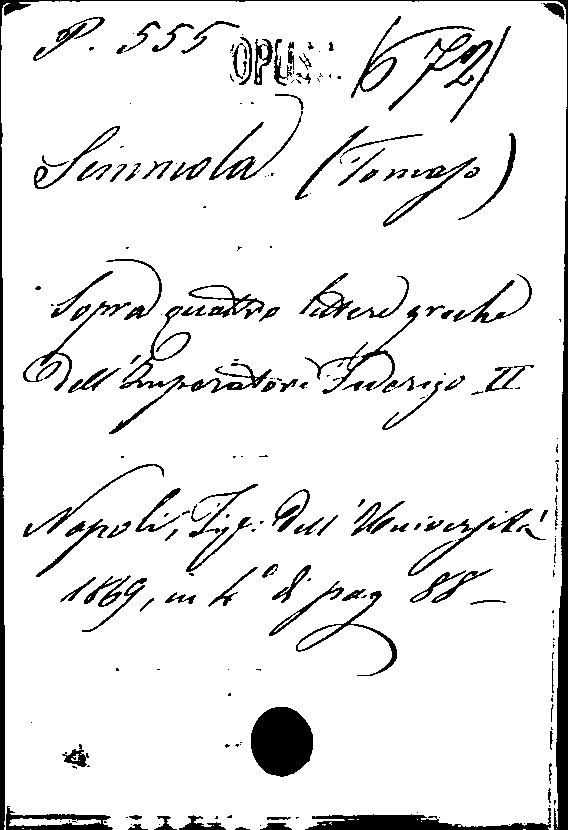 P. 555 OPUSC. (672)
Semmola (Tomaso)
Sopra quattro lettere greche
dell'Imperatore Federigo II
Napoli, Tip: dell'Università
1869, in 4° di pag 88 –